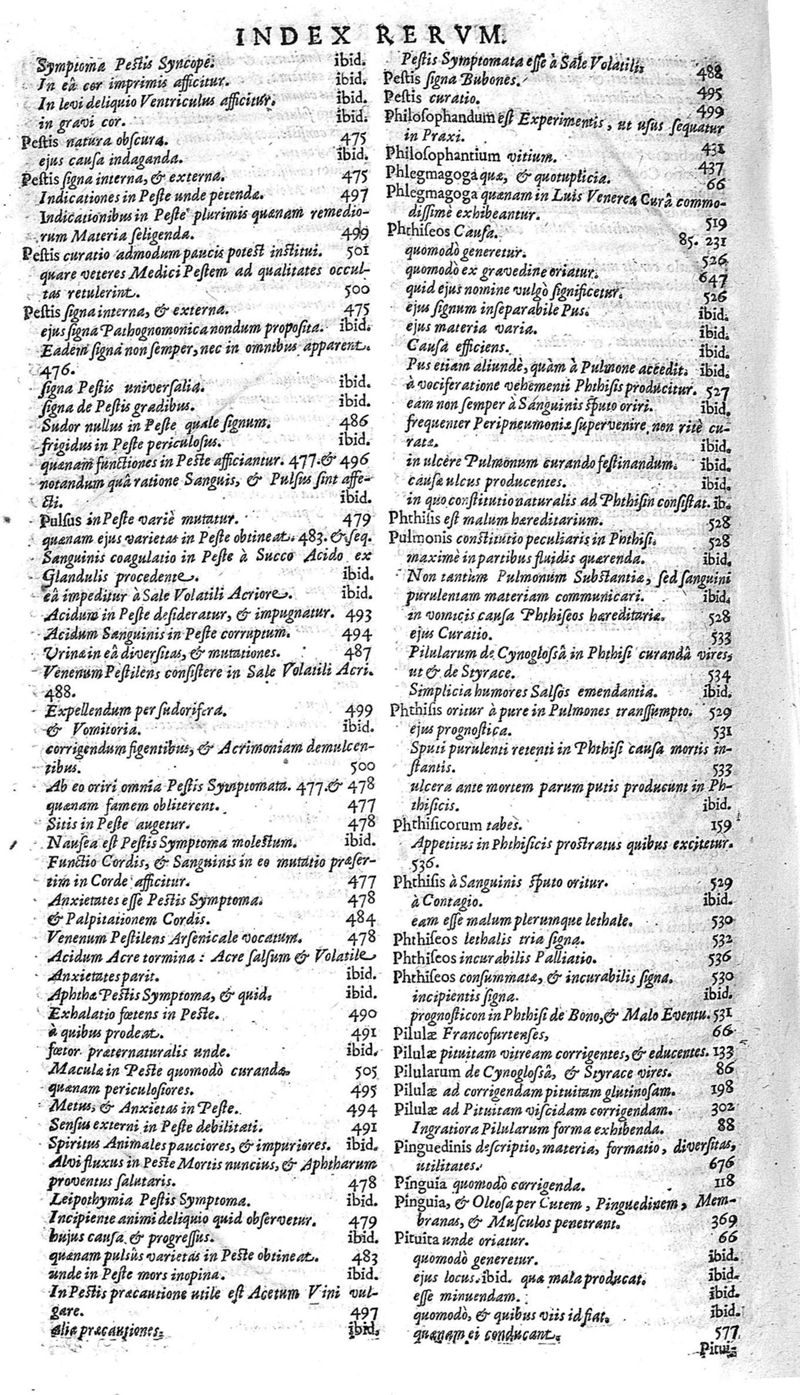 INDEX RERVM.
Symptoma Pestis Syncope. ibid.
In eâ cor imprimis afficitur. ibid.
In levi deliquio Ventriculus afficitur. ibid.
in gravi cor. ibid.
Pestis natura obscura. 475
ejus causa indaganda. ibid.
Pestis signa interna, & externa. 475
Indicationes in Peste unde petenda. 497
Indicationibus in Peste plurimis quænam remedio-
rum Materia seligenda. 499
Pestis curatio admodum paucis potest institui. 501
quare veteres Medici Pestem ad qualitates occul-
tas retulerint. 500
Pestis signa interna, & externa. 475
ejus signa Pathognomonica nondum proposita. ibid.
Eadem signa non semper, nec in omnibus apparent.
476.
signa Pestis universalia. ibid.
signa de Pestis gradibus. ibid.
Sudor nullus in Peste quale signum. 486
frigidus in Peste periculosus. ibid.
quænam functiones in Peste afficiantur. 477. & 496
notandum quâ ratione Sanguis, & Pulsus sint affe-
cti. ibid.
Pulsus in Peste variè mutatur. 479
quænam ejus varietas in Peste obtineat. 483. & seq.
Sanguinis coagulatio in Peste à Succo Acido ex
Glandulis procedente. ibid.
eâ impeditur à Sale Volatili Acriore. ibid.
Acidum in Peste desideratur, & impugnatur. 493
Acidum Sanguinis in Peste corruptum. 494
Urinæ in eâ diversitas, & mutationes. 487
Venenum Pestilens consistere in Sale Volatili Acri.
488.
Expellendum per sudorifera. 499
& Vomitoria. ibid.
corrigendum figentibus, & Acrimoniam demulcen-
tibus. 500
Ab eo oriri omnia Pestis Symptomata. 477. & 478
quænam famem obliterent. 477
Sitis in Peste augetur. 478
Nausea est Pestis Symptoma molestum. ibid.
Functio Cordis, & Sanguinis in eo mutatio præser-
tim in Corde afficitur. 477
Anxietates esse Pestis Symptoma. 478
& Palpitationem Cordis. 484
Venenum Pestilens Arsenicale vocatum. 478
Acidum Acre tormina : Acre salsum & Volatile
Anxietates parit. ibid.
Aphthæ Pestis Symptoma, & quid. ibid.
Exhalatio fœtens in Peste. 490
à quibus prodeat. 491
fœtor præternaturalis unde. ibid.
Maculæ in Peste quomodò curandæ. 505
quænam periculosiores. 495
Metus, & Anxietas in Peste. 494
Sensus externi in Peste debilitati. 491
Spiritus Animales pauciores, & impuriores. ibid.
Alvi fluxus in Peste Mortis nuncius, & Aphtharum
proventus salutaris. 478
Leipothymia Pestis Symptoma. ibid.
Incipiente animi deliquio quid observetur. 479
hujus causa & progressus. ibid.
quænam pulsûs varietas in Peste obtineat. 483
unde in Peste mors inopina. ibid.
In Pestis præcautione utile est Acetum Vini vul-
gare. 497
aliæ præcautiones. ibid.
Pestis Symptomata esse à Sale Volatili. 488
Pestis signa Bubones. 495
Pestis curatio. 499
Philosophandum est Experimentis, ut usus sequatur
in Praxi. 431
Philosophantium vitium. 437
Phlegmagoga quæ, & quotuplicia. 66
Phlegmagoga quænam in Luis Venereæ Curâ commo-
dissimè exhibeantur. 519
Phthiseos Causa. 85. 231
quomodò generetur. 526
quomodò ex gravedine oriatur. 647
quid ejus nomine vulgò significetur. 526
ejus signum inseparabile Pus. ibid.
ejus materia varia. ibid.
Causa efficiens. ibid.
Pus etiam aliundè, quàm à Pulmone accedit. ibid.
à vociferatione vehementi Phthisis producitur. 527
eam non semper à Sanguinis sputo oriri. ibid.
frequenter Peripneumoniæ supervenire non ritè cu-
ratæ. ibid.
in ulcere Pulmonum curando festinandum. ibid.
causæ ulcus producentes. ibid.
in quo constitutio naturalis ad Phthisin consistat. ib.
Phthisis est malum hæreditarium. 528
Pulmonis constitutio peculiaris in Phthisi. 528
maximè in partibus fluidis quærenda. ibid.
Non tantùm Pulmonum Substantiæ, sed sanguini
purulentam materiam communicari. ibid.
in vomicis causa Phthiseos hæreditariæ. 528
ejus Curatio. 533
Pilularum de Cynoglossâ in Phthisi curandâ vires,
ut & de Styrace. 534
Simplicia humores Salsos emendantia. ibid.
Phthisis oritur à pure in Pulmones transsumpto. 529
ejus prognostica. 531
Sputi purulenti retenti in Phthisi causa mortis in-
stantis. 533
ulcera ante mortem parum putis producunt in Ph-
thisicis. ibid.
Phthisicorum tabes. 159
Appetitus in Phthisicis prostratus quibus excitetur.
536.
Phthisis à Sanguinis sputo oritur. 529
à Contagio. ibid.
eam esse malum plerumque lethale. 530
Phthiseos lethalis tria signa. 532
Phthiseos incurabilis Palliatio. 536
Phthiseos consummatæ, & incurabilis signa. 530
incipientis signa. ibid.
prognosticon in Phthisi de Bono, & Malo Eventu. 531
Pilulæ Francofurtenses, 66
Pilulæ pituitam vitream corrigentes, & educentes. 133
Pilularum de Cynoglossâ, & Styrace vires. 86
Pilulæ ad corrigendam pituitam glutinosam. 198
Pilulæ ad Pituitam viscidam corrigendam. 302
Ingratiora Pilularum forma exhibenda. 88
Pinguedinis descriptio, materia, formatio, diversitas,
utilitates. 676
Pinguia quomodò corrigenda. 118
Pinguia, & Oleosa per Cutem, Pinguedinem, Mem-
branas, & Musculos penetrant. 369
Pituita unde oriatur. 66
quomodò generetur. ibid.
ejus locus. ibid. quæ mala producat. ibid.
esse minuendam. ibid.
quomodò, & quibus viis id fiat. ibid.
quænam ei conducant. 577
Pitui-